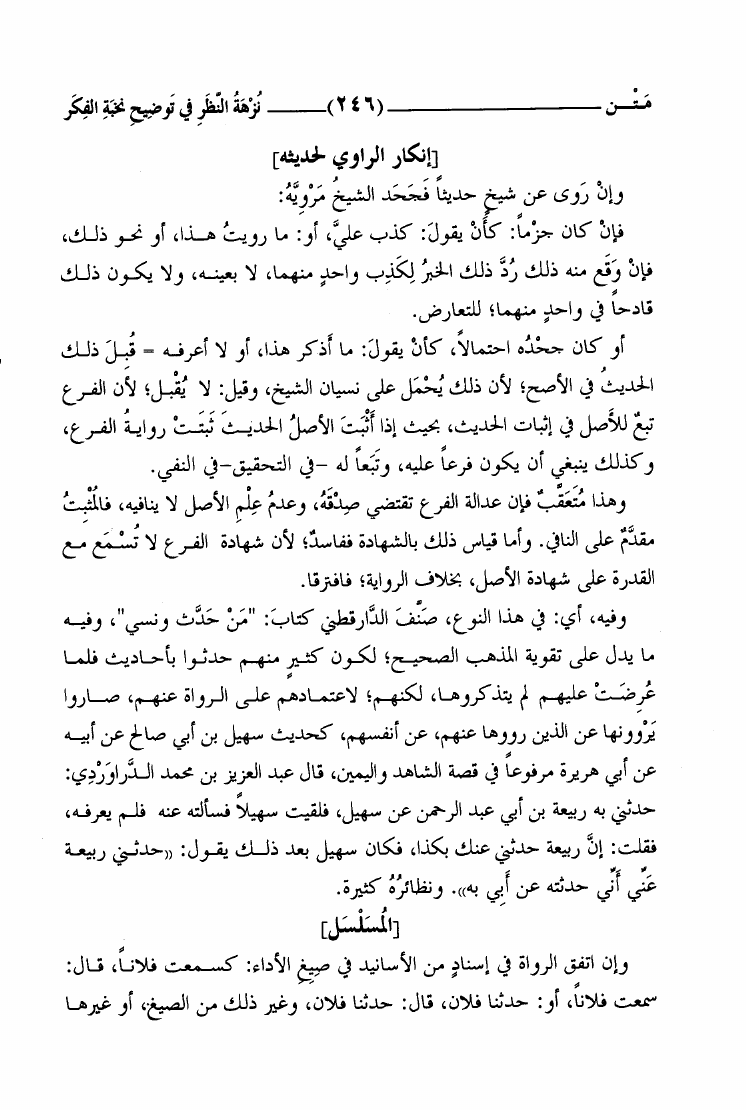 مَتْـــن ــــــــــــــــــــــــ (٢٤٦) ــــــــ نُزْهَةُ النَّظَرِ في تَوضِيحِ نُخبَةِ الفِكَر
[إنكار الراوي لحديثه]
وإنْ رَوى عن شيخٍ حديثاً فَجَحَد الشيخُ مَرْوِيَّهُ:
فإنْ كان جزْماً: كأَنْ يقولَ: كذب عليَّ، أو: ما رويتُ هـذا، أو نحـو ذلـك،
فإنْ وَقَع منه ذلك رُدَّ ذلك الخبرُ لِكَذِب واحدٍ منهما، لا بعينـه، ولا يكـون ذلـك
قادحاً في واحدٍ منهما؛ للتعارض.
أو كان جحْدُه احتمالاً، كأنْ يقولَ: ما أَذكر هذا، أو لا أعرفـه = قُبـلَ ذلـك
الحديثُ في الأصح؛ لأن ذلك يُحْمَل على نسيان الشيخ، وقيل: لا يُقْبل؛ لأن الفـرع
تبعٌ للأَصل في إثبات الحديث، بحيث إذا أَثْبَتَ الأصلُ الحديـثَ ثَبَتَـتْ روايـةُ الفـرع،
وكذلك ينبغي أن يكون فرعاً عليه، وتَبَعاً له -في التحقيق-في النفي.
وهذا مُتَعَقَّبٌ فإن عدالة الفرع تقتضي صِدْقَهُ، وعدمُ عِلْمِ الأصل لا ينافيه، فالمُثْبِتُ
مقدَّمٌ على النافي. وأما قياس ذلك بالشهادة ففاسدٌ؛ لأن شهادة الفـرع لا تُسْـمَع مـع
القدرة على شهادة الأصل، بخلاف الرواية؛ فافترقا.
وفيه، أي: في هذا النوع، صنَّفَ الدَّارقطني كتابَ: "مَنْ حَدَّث ونسي"، وفيـه
ما يدل على تقوية المذهب الصحيـح؛ لكـون كثـيرٍ منهـم حدثـوا بأحـاديث فلمـا
عُرِضَـتْ عليهـم لم يتذكروهـا، لكنهـم؛ لاعتمـادهم علـى الـرواة عنهـم، صـاروا
يَرْوُونها عن الذين رووها عنهم، عن أنفسهم، كحديث سهيل بن أبي صالح عن أبيـه
عن أبي هريرة مرفوعاً في قصة الشاهد واليمين، قال عبد العزيز بن محمد الـدَّراوَرْدِي:
حدثني به ربيعة بن أبي عبد الرحمن عن سهيل، فلقيت سهيلاً فسألته عنه فلـم يعرفـه،
فقلت: إنَّ ربيعة حدثني عنك بكذا، فكان سهيل بعد ذلـك يقـول: «حدثـني ربيعـة
عَنِّي أَنِّي حدثته عن أَبِي به». ونظائرُهُ كثيرة.
[المُسَلْسَل]
وإن اتفق الرواة في إسنادٍ من الأسانيد في صِيَغِ الأداء: كسـمعت فلانـاً، قـال:
سمعت فلاناً، أو: حدثنا فلان، قال: حدثنا فلان، وغير ذلك من الصيغ، أو غيرهـا